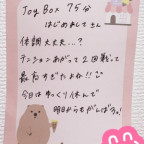 Joy Box 75分
はじめましてさん
体調大丈夫…?
テンションあがって2回戦って
最高すぎたよね!!
今日はゆっくり休んで
明日からもがんばろっ!